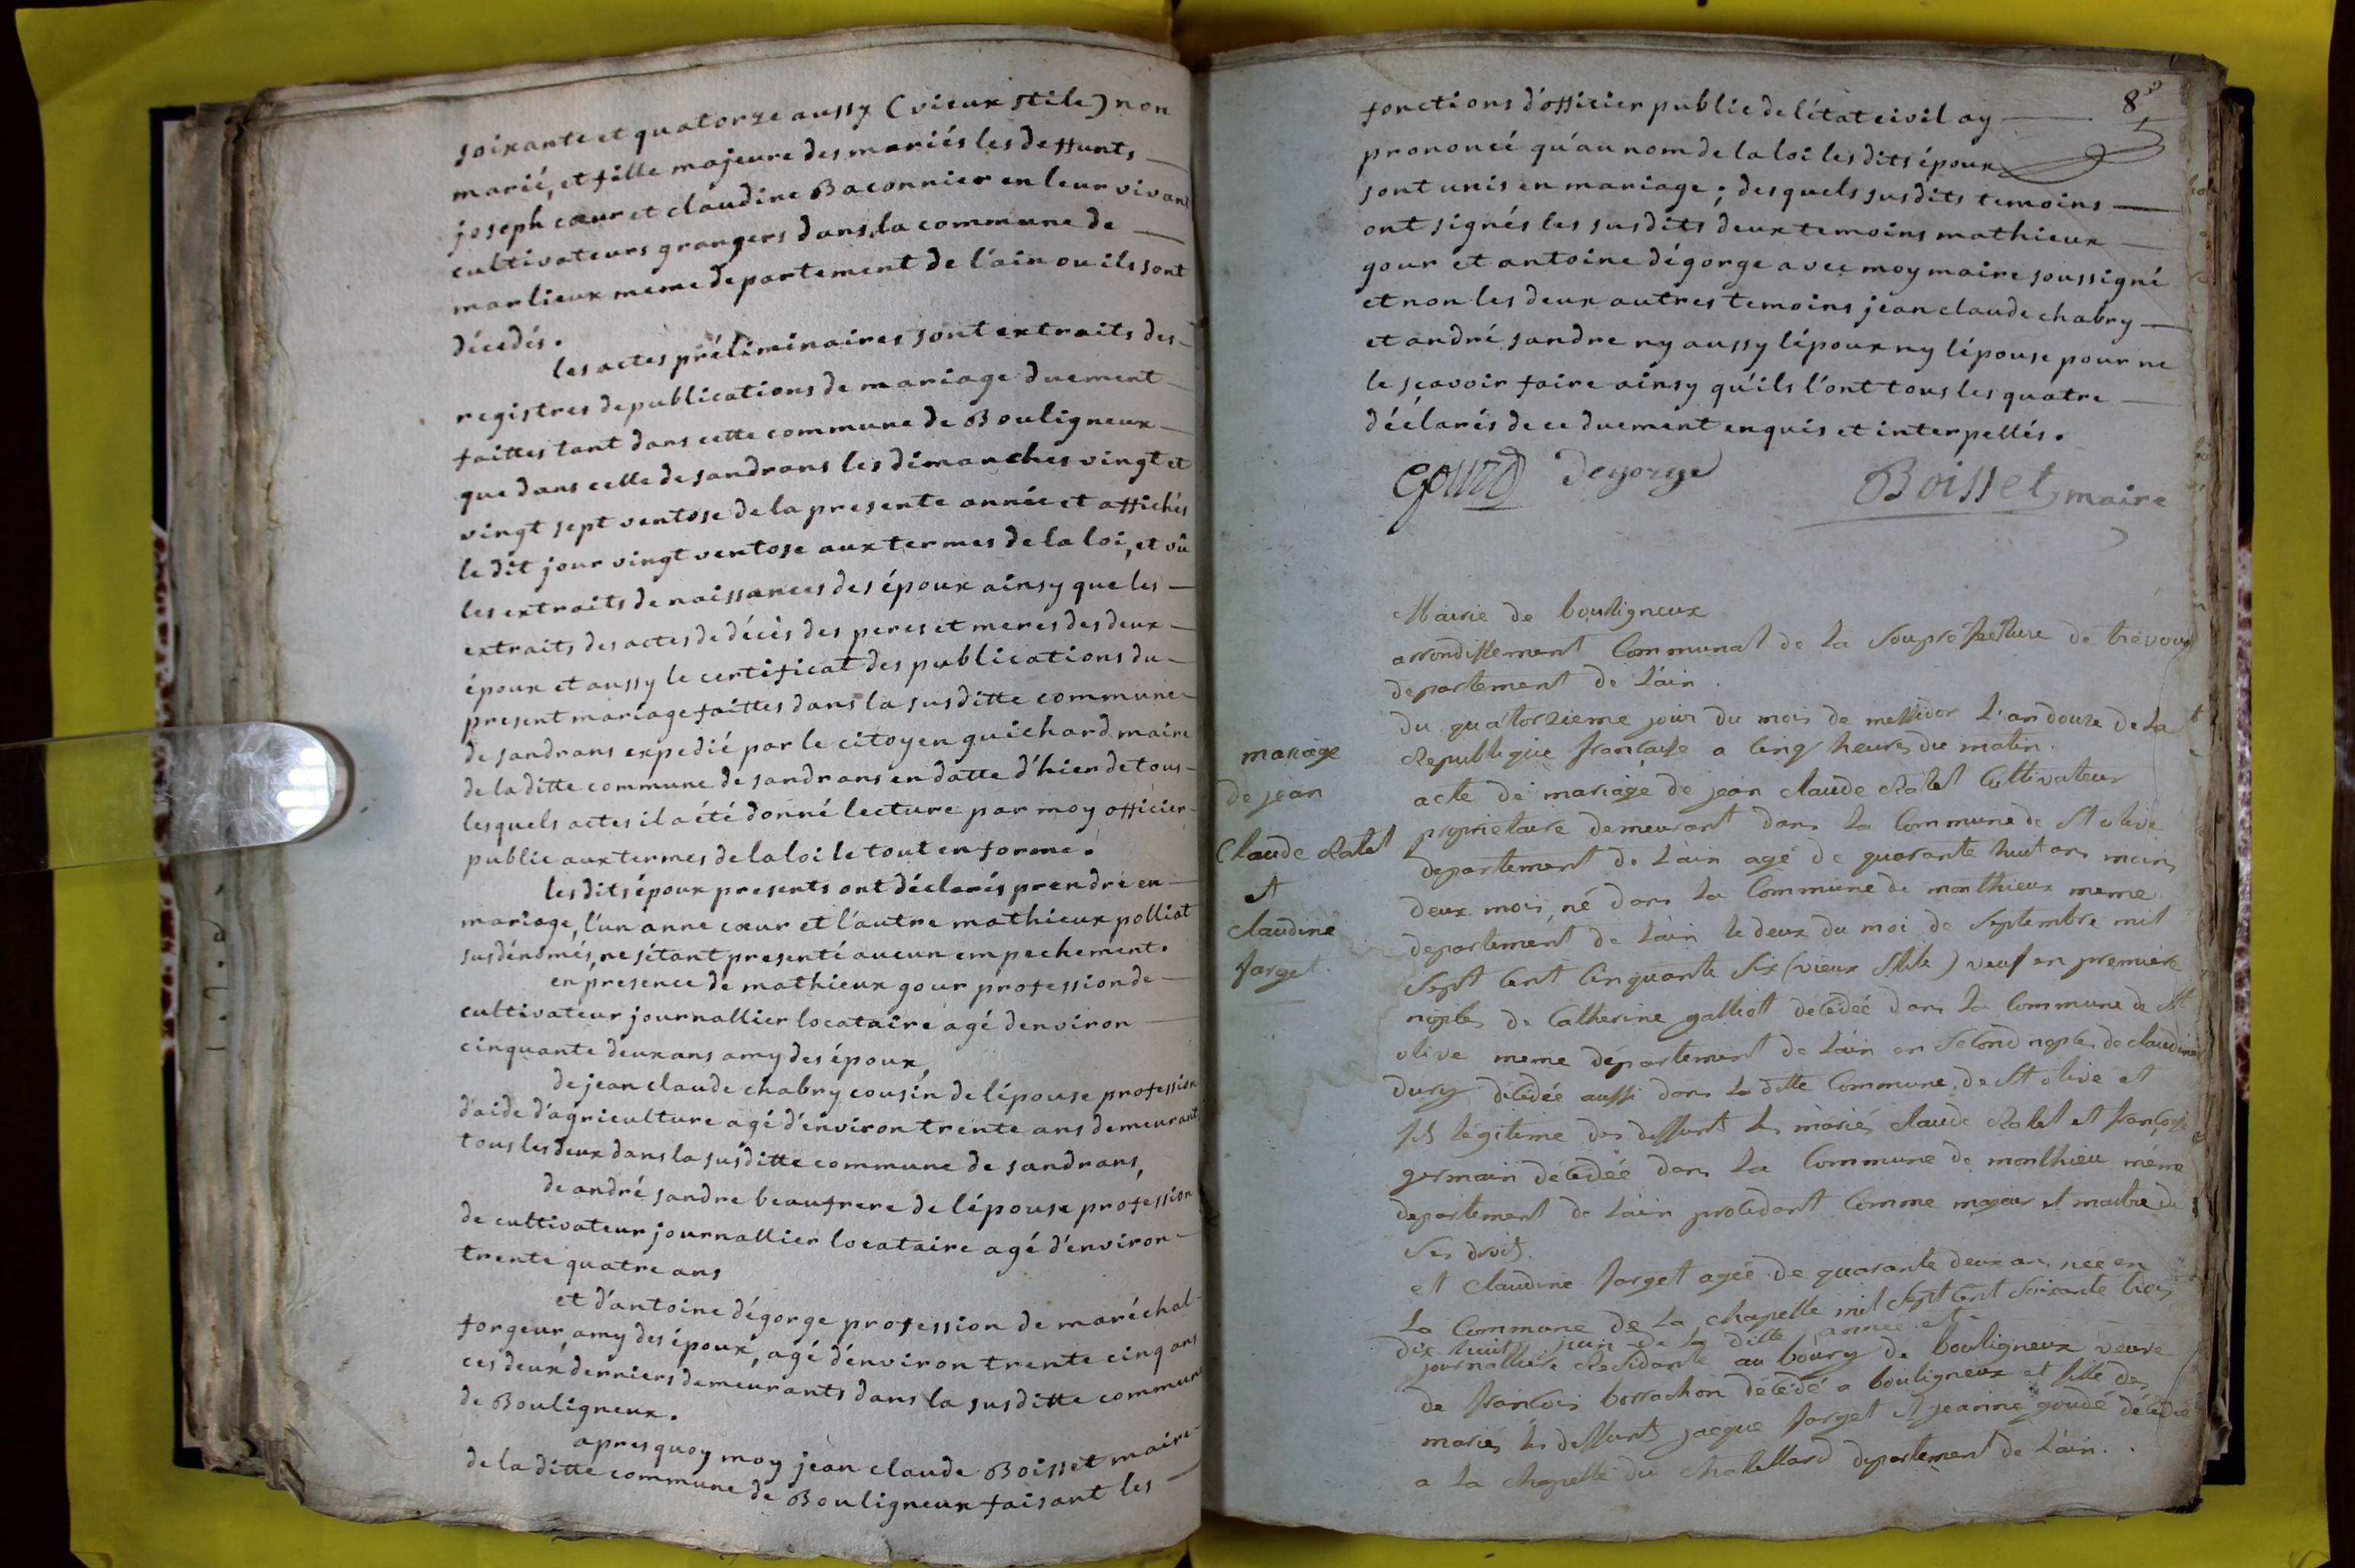 soixante et quatorze aussy (vieux stile) non
marié, et fille majeure des mariés les deffunts
joseph cœur et claudine Baconnier en leur vivant
cultivateurs grangers dans la commune de
marlieux meme departement de l'ain ou ils sont
décedés.
les actes préliminaires sont extraits des
registres de publications de mariage duement
faittes tant dans cette commune de Bouligneux
que dans celle de sandrans les dimanches vingt et
vingt sept ventose de la presente année et affichés
le dit jour vingt ventose aux termes de la loi, et vû
les extraits de naissances des époux ainsy que les
extraits des actes de décès des peres et meres des deux
époux et aussy le certificat des publications du
present mariage faittes dans la susditte commune
de sandrans expedié par le citoyen guichard maire
de la ditte commune de sandrans en datte d'hier de tous
lesquels actes il a été donné lecture par moy officier
public aux termes de la loi le tout en forme.
les dits époux presents ont déclarés prendre en
mariage, l'un anne cœur et l'autre mathieux polliat
susdénomés, ne s'étant presenté aucun empechement.
en presence de mathieux gour profession de
cultivateur journallier locataire agé denviron
cinquante deux ans amy des époux,
de jean claude chabry cousin de l'épouse profession
d'aide d'agriculture agé d'environ trente ans demeurant
tous les deux dans la susditte commune de sandrans,
de andré sandre beaufrere de l'épouse profession
de cultivateur journallier locataire agé d'environ
trente quatre ans
et d'antoine dégorge profession de maréchal
forgeur, amy des époux, agé d'environ trente cinq ans
ces deux derniers demeurants dans la susditte commune
de Bouligneux.
apres quoy moy jean claude Boisset maire
de la ditte commune de Bouligneux faisant les
8
fonctions d'officier public de l'état civil ay
prononcé qu'au nom de la loi les dits époux
sont unis en mariage; desquels susdits temoins
ont signés les susdits deux temoins mathieux
gour et antoine dégorge avec moy maire soussigné
et non les deux autres temoins jean claude chabry
et andré sandre ny aussy l'époux ny l'épouse pour ne
le sçavoir faire ainsy qu'ils l'ont tous les quatre
déclarés de ce duement enquis et interpellés.
gour Degorge Boisset maire
Mairie de bouligneux
arrondissement Communal de la Souprefecture de trévoux
departement de L'ain.
du quatorzieme jour du mois de messidor L'an douze de La
Republique française a Cinq heures du matin.
mariage
de jean
Claude Ratet
et
claudine
farget.
acte de mariage de jean claude Ratet Cultivateur
proprietaire demeurant dans la Commune de St olive
departement de L'ain agé de quarante huit ans moins
deux mois, né dans La Commune de monthieux meme
departement de L'ain le deux du moi de Septembre mil
Sept Cent Cinquante Six (vieux Stile) veuf en premiere
nopces de Catherine galliott decédée dans La Commune de St
olive meme département de L'ain en Second nopces de claudine
dury décédée aussi dans La ditte Commune de St olive et
fils légitime des deffunt Les mariés claude Ratet et françoise
germain décédée dans La Commune de monthieu méme
departement de L'ain procédant Comme majeur et maitre de
Ses droits.
et Claudine farget agée de quarante deux an née en
La Commune de La chapelle mil Sept Cent Soixante trois
dix huit juin de La ditte année et
journalliere Residante au bourg de bouligneux veuve
de françois borrachon décédé a bouligneux et fille des
mariés les deffunts jacque farget et jeanne goudé décédé
a La chapelle du chatellard departement de L'ain.